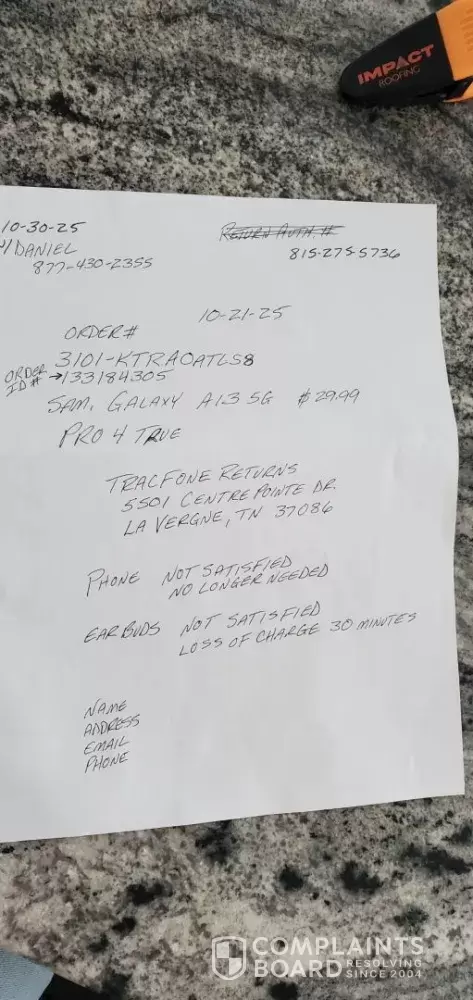 IMPACT
ROOFING
10-30-25
W/DANIEL
877-430-2355
RETURN AUTH #
815-275-5736
10-21-25
ORDER#
3101-KTRAOATLS8
ORDER ID # →133184305
SAM. GALAXY A13 5G $29.99
PRO 4 TRUE
TRACFONE RETURNS
5501 CENTRE POINTE DR.
LA VERGNE, TN 37086
PHONE NOT SATISFIED
NO LONGER NEEDED
EAR BUDS NOT SATISFIED
LOSS OF CHARGE 30 MINUTES
NAME
ADDRESS
EMAIL
PHONE
COMPLAINTS
BOARD RESOLVING
SINCE 2004